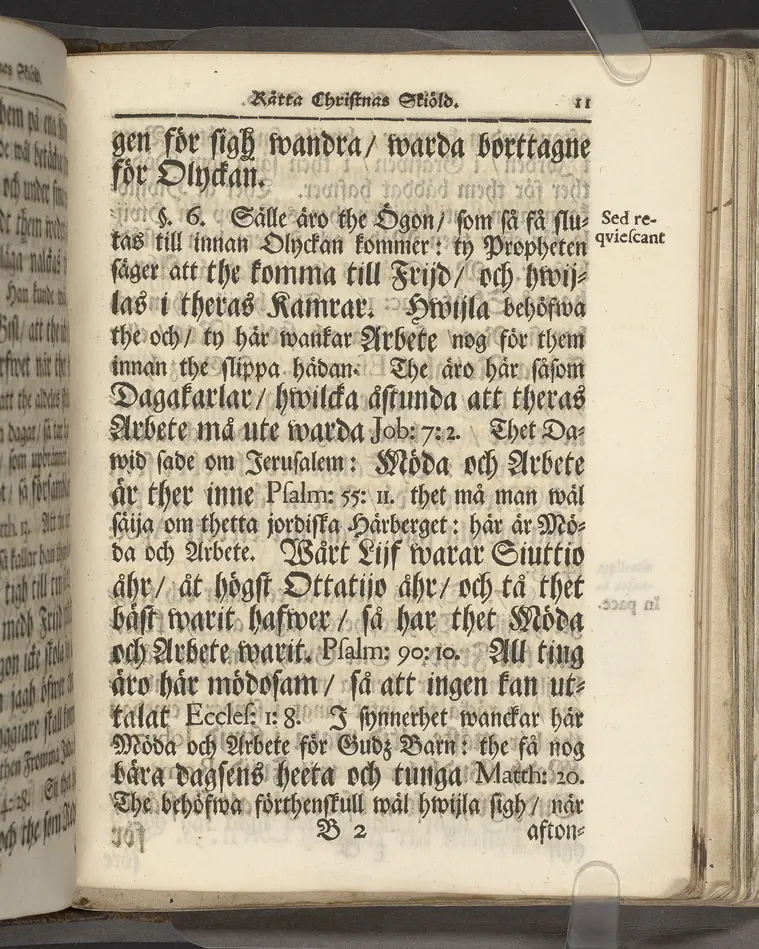 Rätta Christnas Skiöld. 11
gen för sigh wandra/ warda borttagne
för Olyckan.
§. 6. Sälle äro the Ögon/ som så få slu-
tas till innan Olyckan kommer: ty Propheten
säger att the komma till Frijd/ och hwij-
las i theras Kamrar. Hwijla behöfwa
the och/ ty här wankar Arbete nog för them
innan the slippa hädan. The äro här såsom
Dagakarlar/ hwilcka åstunda att theras
Arbete må ute warda Job: 7: 2. Thet Da-
wid sade om Jerusalem: Möda och Arbete
är ther inne Psalm: 55: 11. thet må man wäl
säija om thetta jordiska Härberget: här är Mö-
da och Arbete. Wårt Lijf warar Siuttio
åhr/ åt högst Ottatijo åhr/ och tå thet
bäst warit hafwer/ så har thet Möda
och Arbete warit. Psalm: 90: 10. All ting
äro här mödosam/ så att ingen kan ut-
talat Eccles: 1: 8. I synnerhet wanckar här
Möda och Arbete för Gudz Barn: the få nog
bära dagsens heeta och tunga Matth: 20.
The behöfwa förthenskull wäl hwijla sigh/ när
B 2 afton-
Sed re-
qviescant